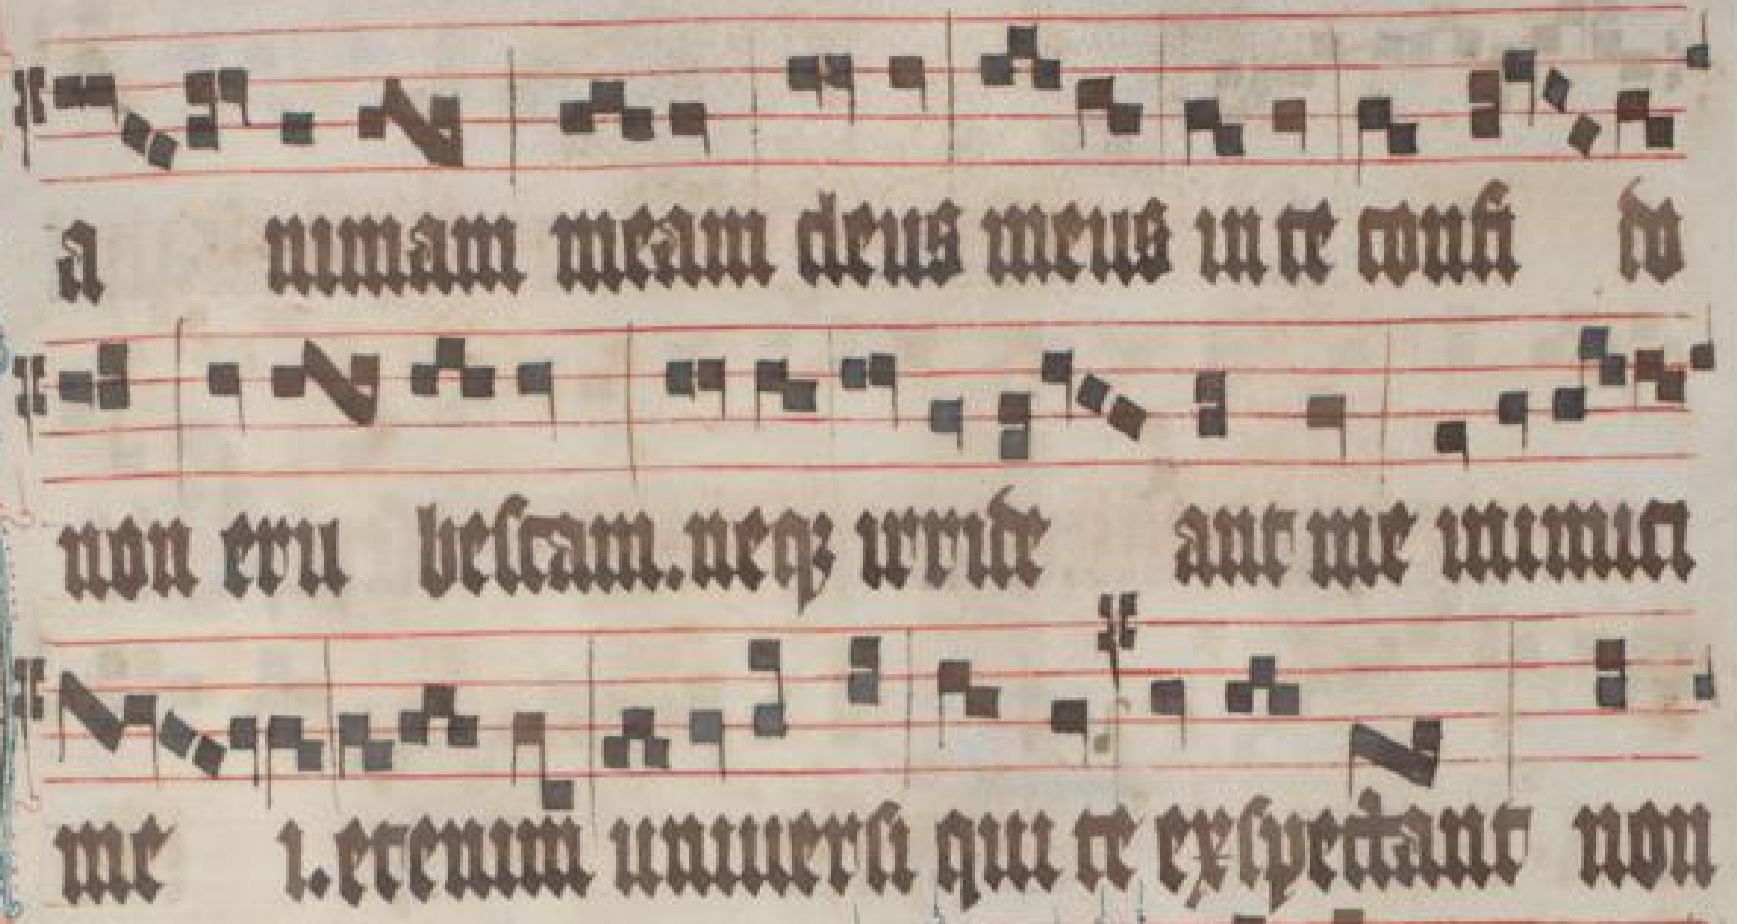 a nimam meam deus meus in te confi do
non eru bescam. neqȝ irride ant me inimici
me i. etenim uniuersi qui te exspectant non